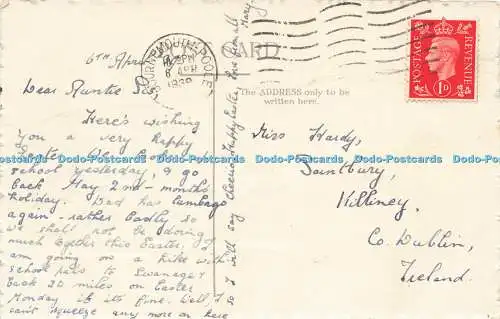 6TH April
Dear Auntie
Here's wishing
you a very happy
Easter. We
school yesterday, & go
back May 2nd - months
holiday. Dad has lumbago
again - rather badly so
we shall not be doing
much together this Easter. I
am going on a hike with
school pals to Swanage &
back 20 miles on Easter
Monday if its fine. Well, I
can't squeeze any more on here
so I will say cheerio, Happy Easter, love from all
Mary
BOURNEMOUTH-POOLE
PM
6 APR
CARD
The ADDRESS only to be
written here.
POSTAGE
REVENUE
1D
Miss Hardy,
Sainsbury,
Killiney,
Co. Dublin,
Ireland.
Dodo-Postcards Dodo-Postcards Dodo-Postcards Dodo-Postcards Dodo-Postcards